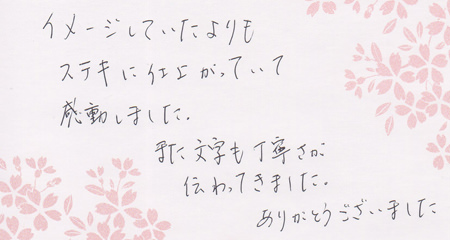 イメージしていたよりも
ステキに仕上がっていて
感動しました。
また文字も丁寧さが
伝わってきました。
ありがとうございました